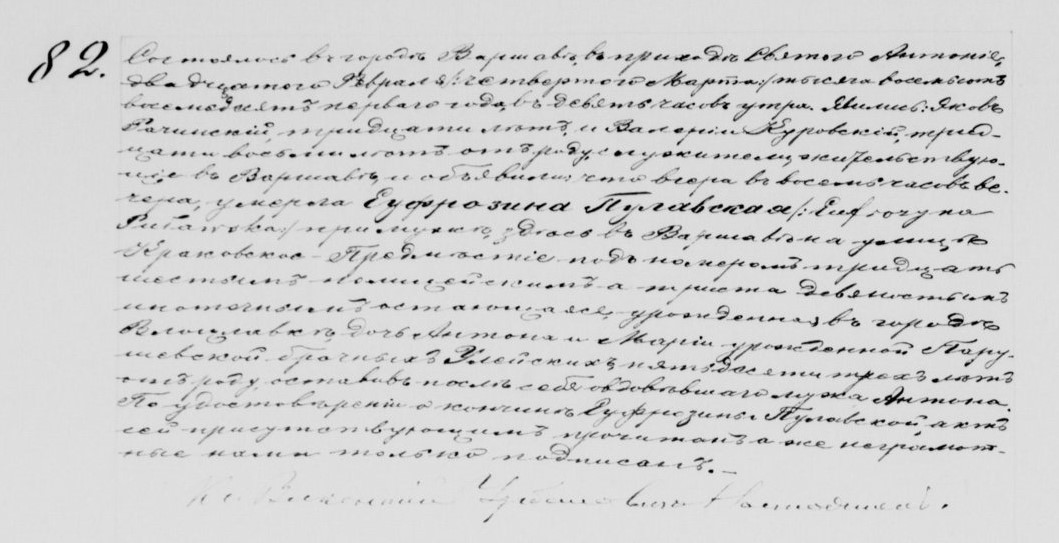 82.
Состоялось въ городѣ Варшавѣ, въ приходѣ Святого Антонія,
двадцатого Февраля /: четвертого Марта :/ тысяча восемьсотъ
восемьдесятъ перваго года, въ девять часовъ утра. Явились: Яковъ
Рачинскій, тридцати лѣтъ, и Валерій Куровскій, трид-
цати восьми лѣтъ отъ роду, служители, жительствую-
щіе въ Варшавѣ, и объявили, что вчера въ восемь часовъ ве-
чера, умерла Еуфрозина Пулавская /:
Puławska:/ при мужѣ, здѣсь въ Варшавѣ на улицѣ
Краковское-Предмѣстіе подъ номеромъ тридцать
шестымъ полицейскимъ а триста девяностымъ
ипотечнымъ остающаяся, урожденная въ городѣ
Влоцлавкѣ, дочь Антона и Маріи урожденной
брачныхъ пятьдесяти трехъ лѣтъ
отъ роду, оставивъ послѣ себя овдовѣвшаго мужа Антона.
По удостовѣреніи о кончинѣ Еуфрозины Пулавской, актъ
сей присутствующимъ прочитанъ а же неграмот-
ные нами только подписанъ.